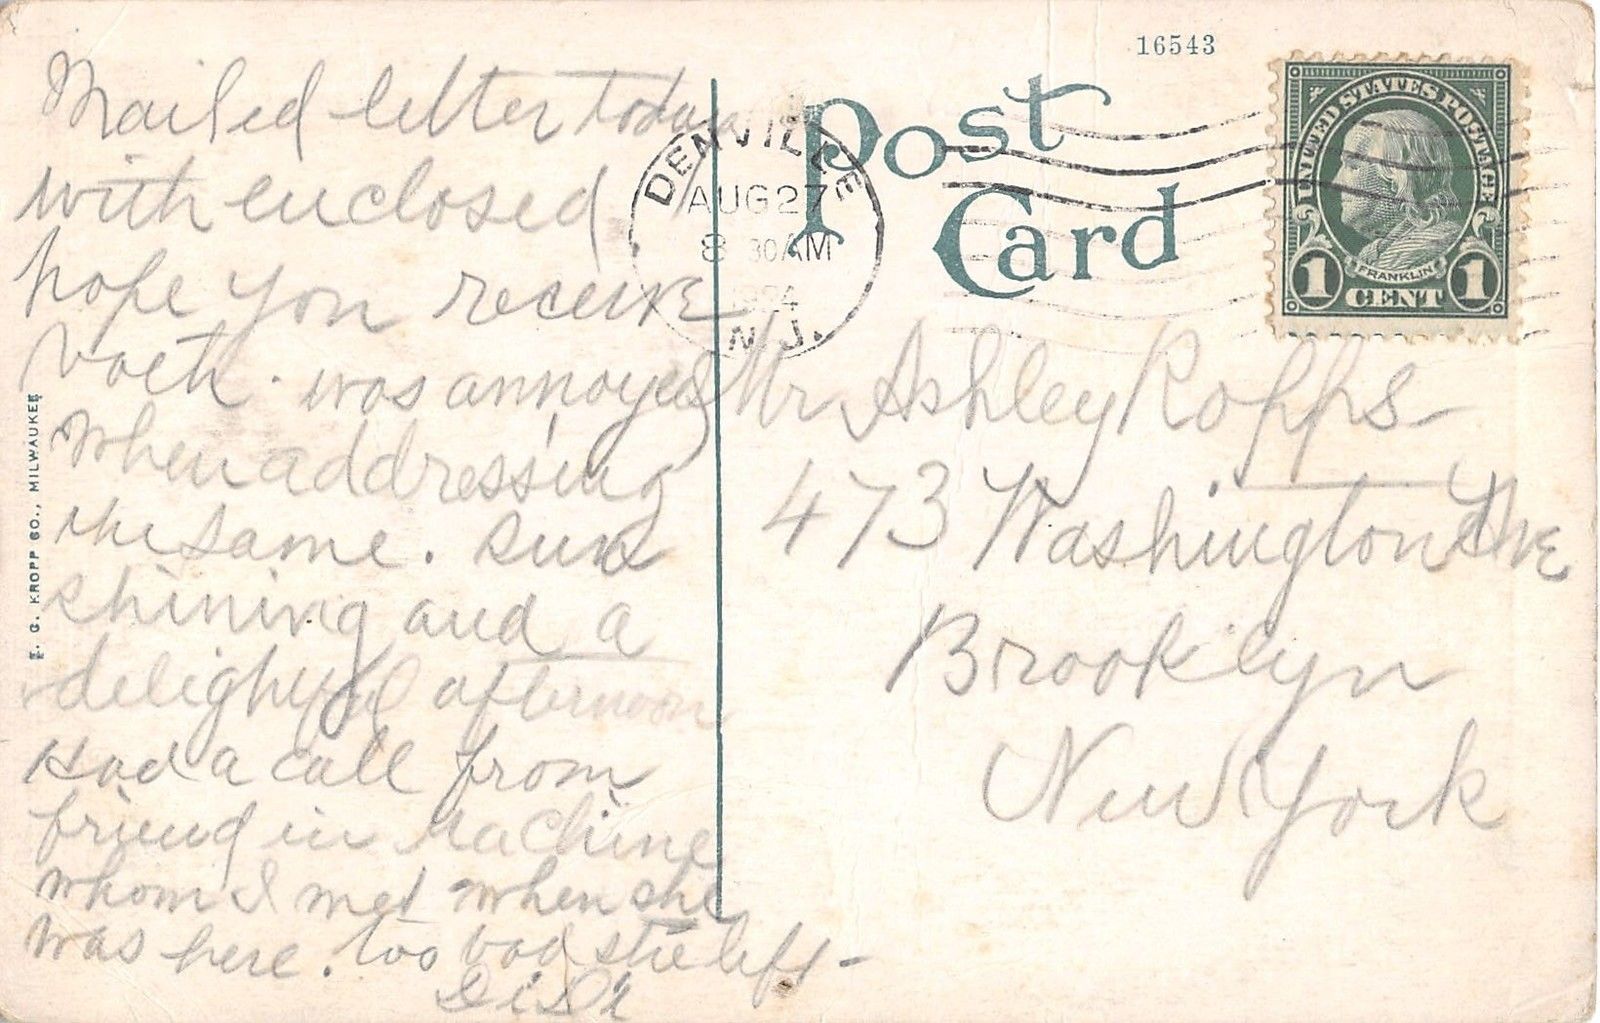 16543
Post
Card
UNITED STATES POSTAGE
FRANKLIN
1 CENT 1
DENVILLE
AUG 27
8 30AM
N.J.
Mailed letter today
with enclosed
hope you receive
both. was annoyed
when addressing
the same. Sun
shining and a
delightful afternoon
Had a call from
friend in machine
whom I met when she
was here. too bad she left -
Mr Ashley Ropps
473 Washington Ave
Brooklyn
New York
E. C. KROPP CO., MILWAUKEE